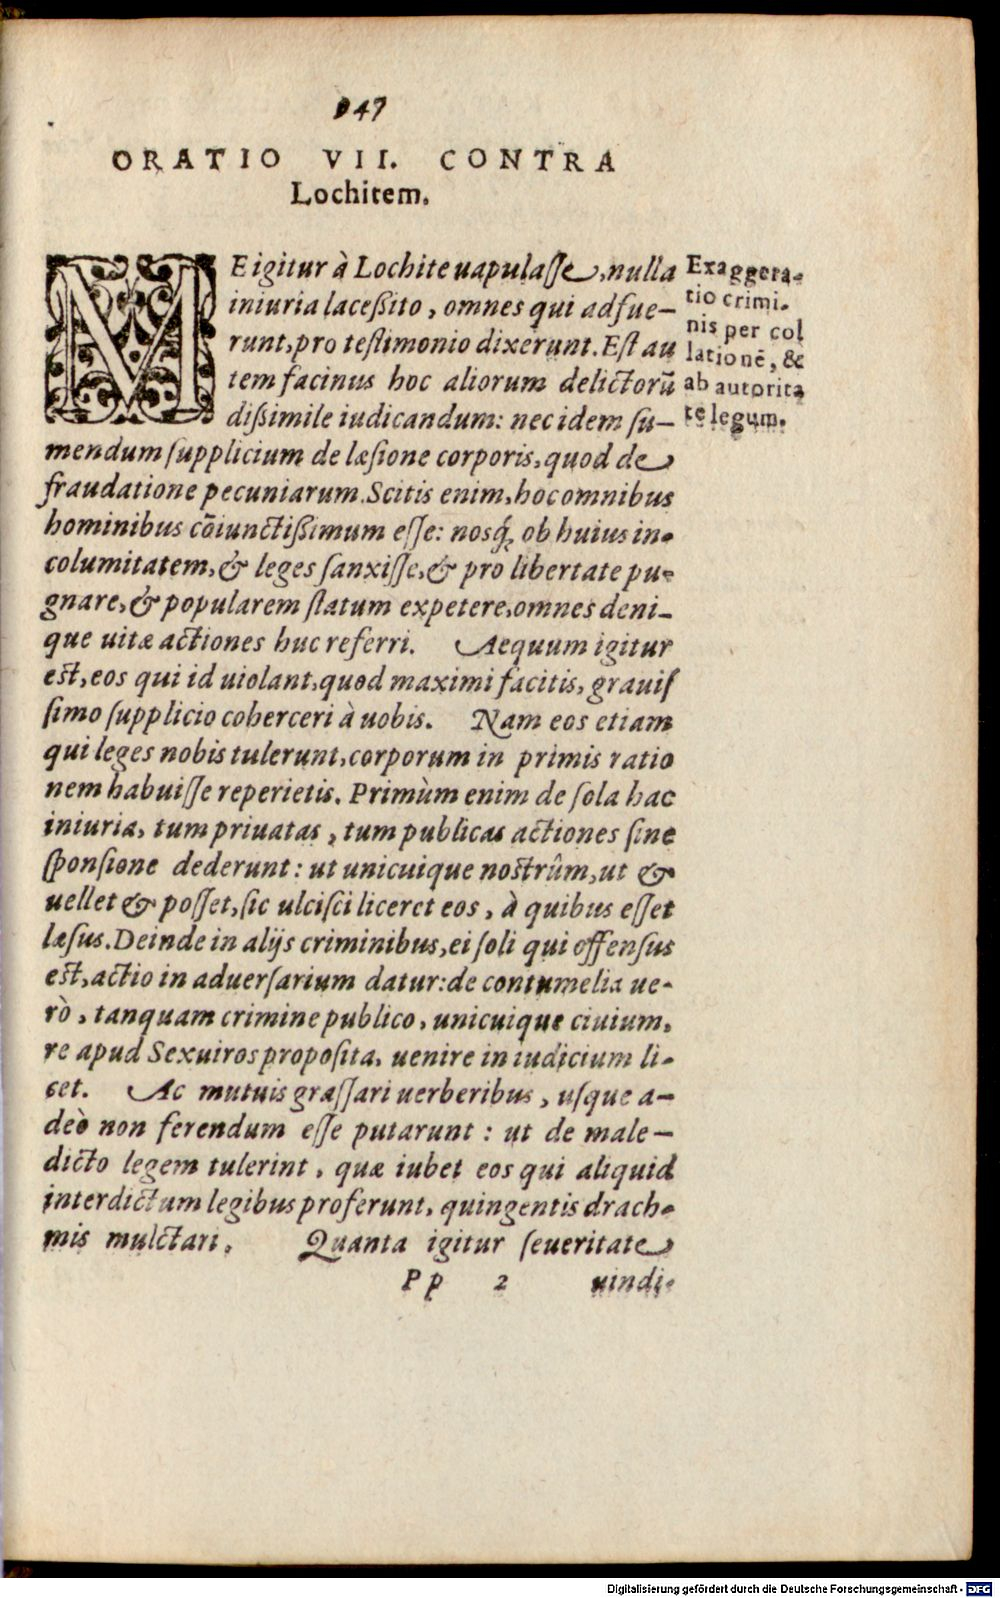 947
ORATIO VII. CONTRA
Lochitem.
ME igitur à Lochite uapulasse, nulla
iniuria laceßito, omnes qui adfue-
runt, pro testimonio dixerunt. Est au
tem facinus hoc aliorum delictorũ
dißimile iudicandum: nec idem su-
mendum supplicium de læsione corporis, quod de
fraudatione pecuniarum. Scitis enim, hoc omnibus
hominibus cõiunctißimum esse: nosq́; ob huius in-
columitatem, & leges sanxisse, & pro libertate pu-
gnare, & popularem statum expetere, omnes deni-
que uitæ actiones huc referri. Aequum igitur
est, eos qui id uiolant, quod maximi facitis, grauis
simo supplicio coherceri à uobis. Nam eos etiam
qui leges nobis tulerunt, corporum in primis ratio
nem habuisse reperietis. Primùm enim de sola hac
iniuria, tum priuatas, tum publicas actiones sine
sponsione dederunt: ut unicuique nostrûm, ut &
uellet & posset, sic ulcisci liceret eos, à quibus esset
læsus. Deinde in alijs criminibus, ei soli qui offensus
est, actio in aduersarium datur: de contumelia ue-
rò, tanquam crimine publico, unicuique ciuium,
re apud Sexuiros proposita, uenire in iudicium li-
cet. Ac mutuis grassari uerberibus, usque a-
deò non ferendum esse putarunt: ut de male-
dicto legem tulerint, quæ iubet eos qui aliquid
interdictum legibus proferunt, quingentis drach-
mis mulctari. Quanta igitur seueritate
Pp 2 uindi-
Exaggera-
tio crimi-
nis per col
lationẽ, &
ab autorita
te legum.
Digitalisierung gefördert durch die Deutsche Forschungsgemeinschaft - DFG